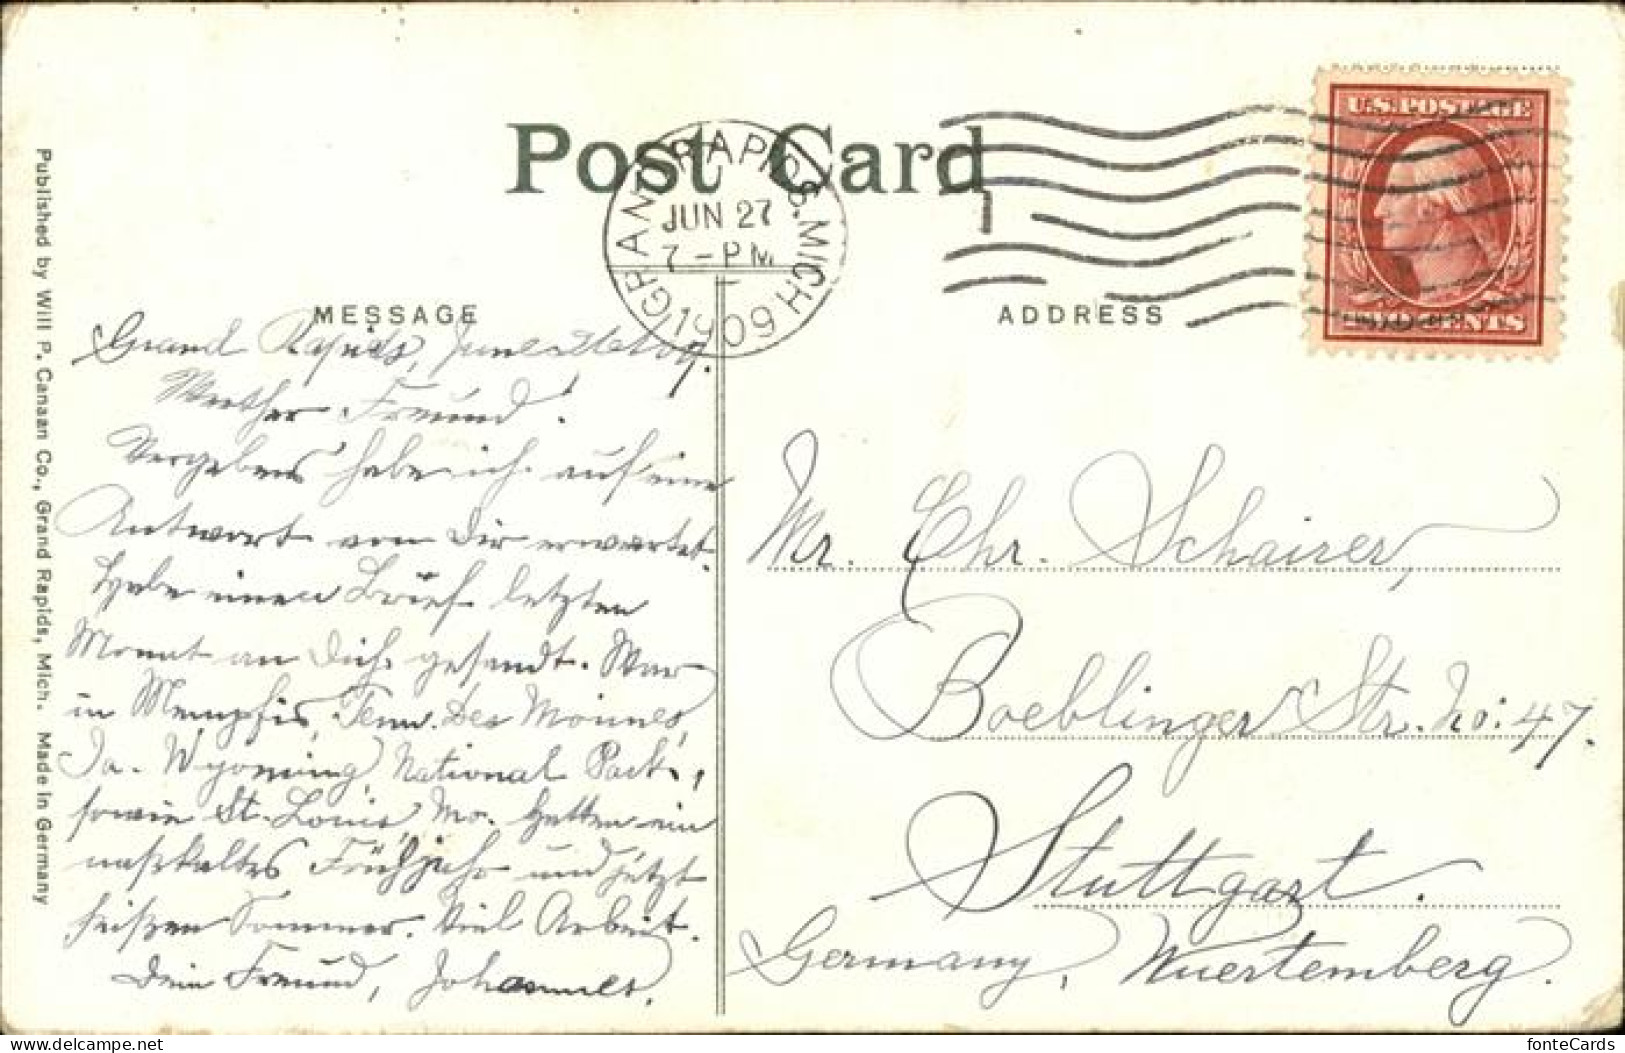 Post Card
GRAND RAPIDS. MICH.
JUN 27
7 - PM
1909
U.S. POSTAGE
TWO CENTS
MESSAGE
ADDRESS
Grand Rapids, June 09.
Werther Freund!
Vergebens habe ich auf eine
Antwort von Dir erwartet.
Habe einen Brief letzten
Monat an Dich gesandt. War
in Memphis, Tenn. Des Moines,
Ia. Wyoming, National Park,
sowie St. Louis, Mo. Hatten ein
naßkaltes Frühjahr und jetzt
heißen Sommer. Viel Arbeit.
Dein Freund, Johannes.
Mr. Chr. Schairer,
Boeblinger Str. No: 47.
Stuttgart.
Germany, Wuertemberg.
Published by Will P. Canaan Co., Grand Rapids, Mich. Made in Germany
fonteCards
the best of every collection